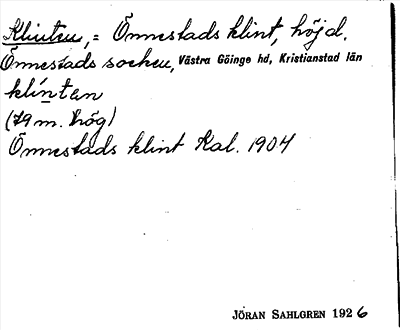 Klinten, = Önnestads klint, höjd.
Önnestads socken, Västra Göinge hd, Kristianstad län
klíntan
(79 m. hög)
Önnestads klint Kal. 1904
JÖRAN SAHLGREN 1926